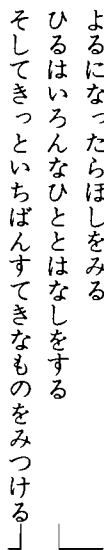 よるになったらほしをみる
ひるはいろんなひととはなしをする
そしてきっといちばんすてきなものをみつける